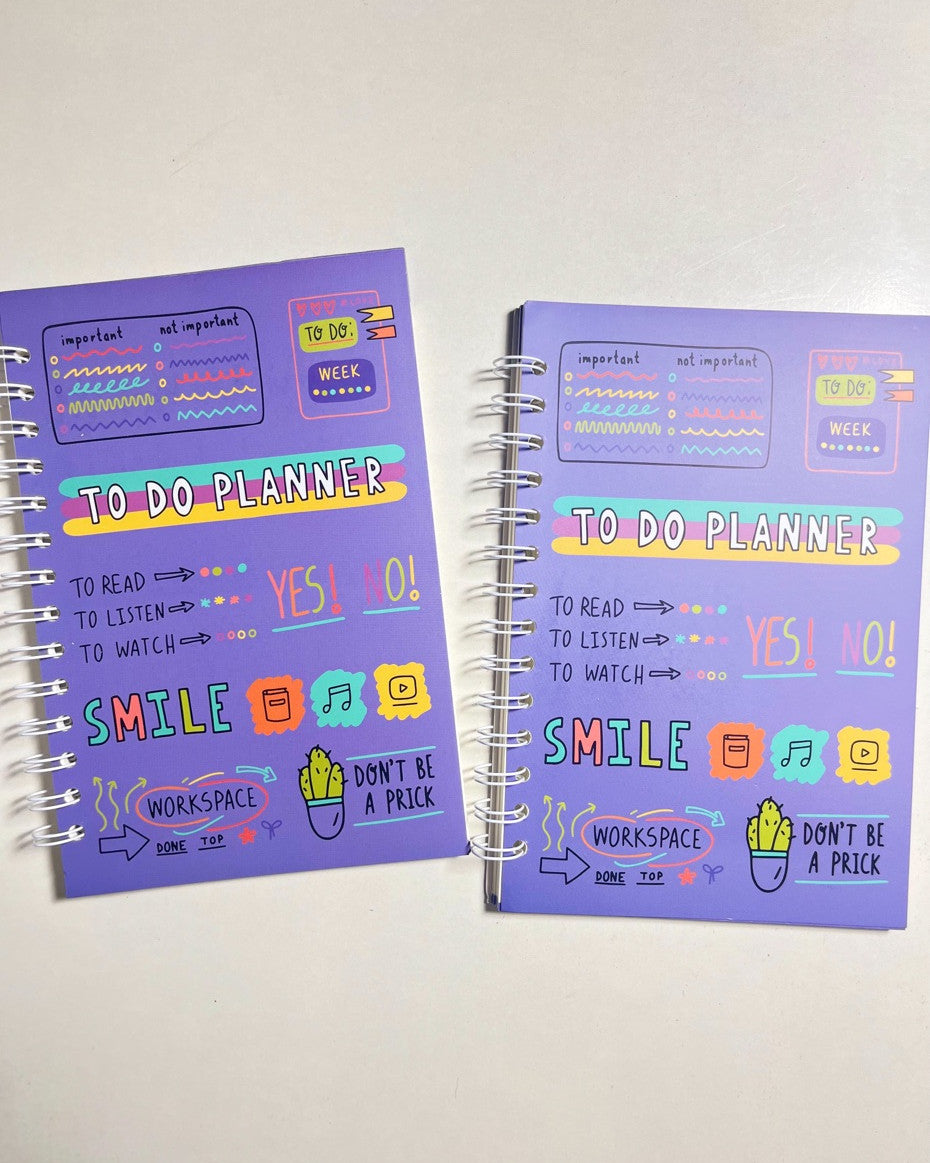 important not important
# LOVE
TO DO:
WEEK
TO DO PLANNER
TO READ
TO LISTEN
TO WATCH
YES! NO!
SMILE
WORKSPACE
DONE TOP
DON'T BE
A PRICK
important not important
# LOVE
TO DO:
WEEK
TO DO PLANNER
TO READ
TO LISTEN
TO WATCH
YES! NO!
SMILE
WORKSPACE
DONE TOP
DON'T BE
A PRICK